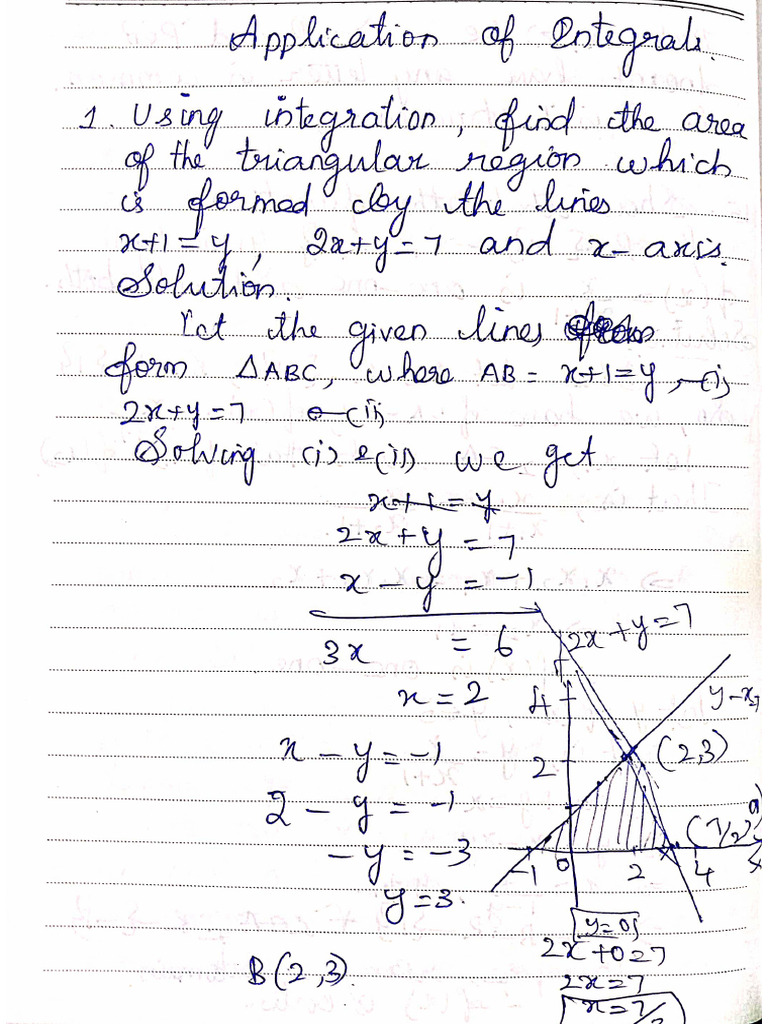 Application of Integrals.
1. Using integration, find the area
of the triangular region which
is formed by the lines
x+1=y, 2x+y=7 and x-axis.
Solution.
Let the given lines
form △ABC, where AB = x+1=y, —(i)
2x+y=7 —(ii)
Solving (i) & (ii) we get
x+1=y
2x+y=7
x-y=-1
3x = 6
x=2
x-y=-1
2-y=-1
-y=-3
y=3.
B(2,3).
2x+y=7
4
y-x
2
(2,3)
(7/2, 0)
-1
0
2
4
x
y=0
2x+0=7
2x=7
x=7/2